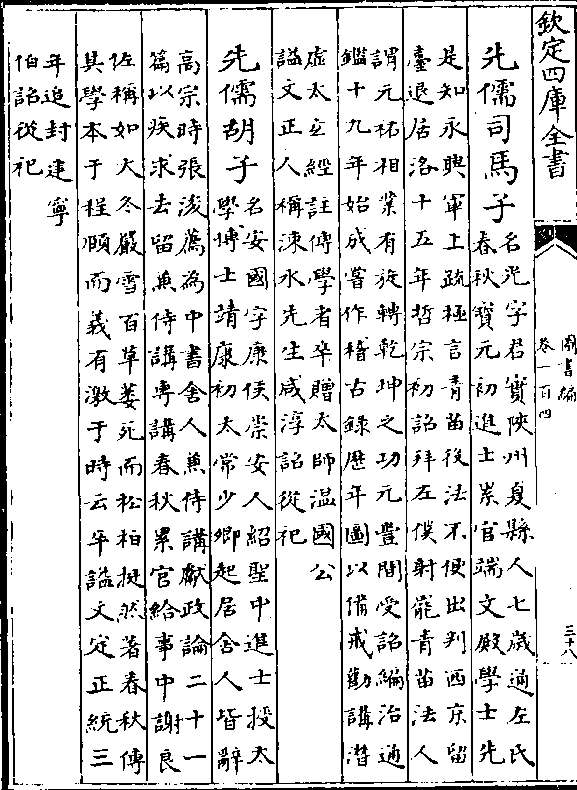 欽定四庫全書
圖書編
卷一百四
三十八
先儒司馬子
名光字君實陜州夏縣人七歲通左氏
春秋寶元初進士累官端文殿學士先
是知永興軍上疏極言青苗役法不便出判西京留
臺退居洛十五年哲宗初詔拜左僕射罷青苗法人
謂元祐相業有旋轉乾坤之功元豐間受詔編治通
鑑十九年始成嘗作稽古錄歷年圖以備戒勸講潛
虛太玄經註傳學者卒贈太師溫國公
諡文正人稱涑水先生咸淳詔從祀
先儒胡子
名安國字康侯崇安人紹聖中進士授太
學博士靖康初太常少卿起居舍人皆辭
高宗時張浚薦為中書舍人兼侍講獻政論二十一
篇以疾求去留兼侍講專講春秋累官給事中謝良
佐稱如大冬嚴雪百草萎死而松柏挺然著春秋傳
其學本于程頤而義有激于時云卒諡文定正統三
年追封建寧
伯詔從祀